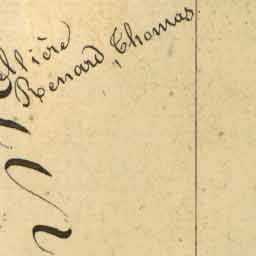 ellière
Renard, Thomas